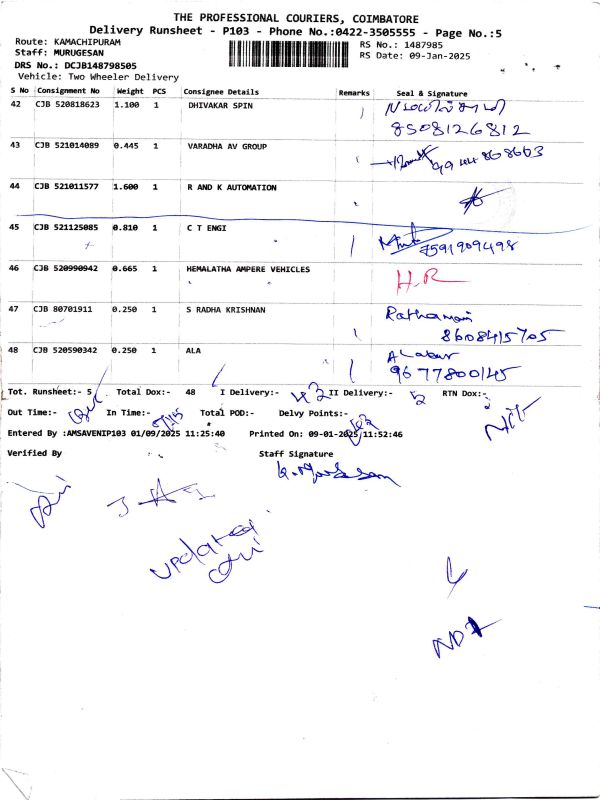 THE PROFESSIONAL COURIERS, COIMBATORE
Delivery Runsheet - P103 - Phone No.:0422-3505555 - Page No.:5
Route: KAMACHIPURAM
Staff: MURUGESAN
DRS No.: DCJB148798505
Vehicle: Two Wheeler Delivery
RS No.: 1487985
RS Date: 09-Jan-2025
S No Consignment No Weight PCS Consignee Details Remarks Seal & Signature
42 CJB 520818623 1.100 1 DHIVAKAR SPIN
8508126812
43 CJB 521014089 0.445 1 VARADHA AV GROUP
44 CJB 521011577 1.600 1 R AND K AUTOMATION
45 CJB 521125085 0.810 1 C T ENGI
7591909498
46 CJB 520990942 0.665 1 HEMALATHA AMPERE VEHICLES H.R
47 CJB 80701911 0.250 1 S RADHA KRISHNAN
8608415705
48 CJB 520590342 0.250 1 ALA
9677800145
Tot. Runsheet:- 5 Total Dox:- 48 I Delivery:- 43 II Delivery:- 5 RTN Dox:-
Out Time:- In Time:- Total POD:- Delvy Points:-
Entered By :AMSAVENIP103 01/09/2025 11:25:40 Printed On: 09-01-2025/11:52:46
Verified By Staff Signature
updated